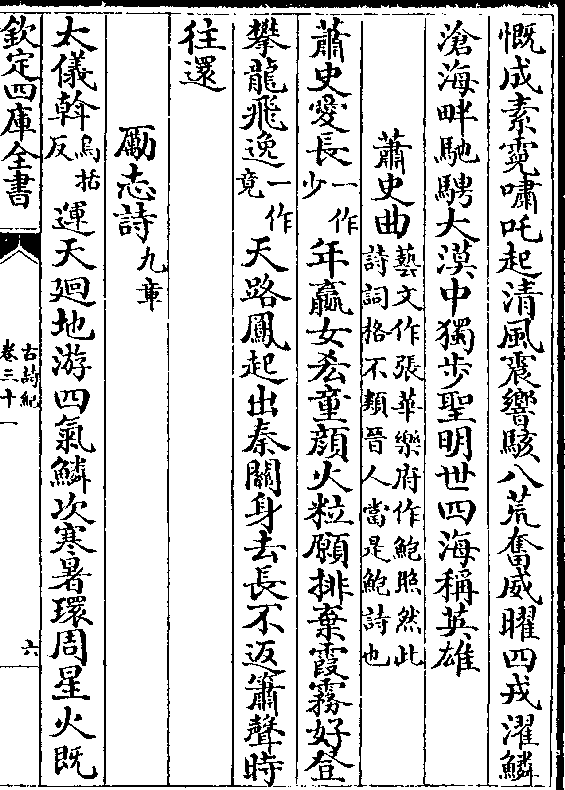 慨成素霓嘯吒起清風震響駭八荒奮威曜四戎濯鱗
滄海畔馳騁大漠中獨步聖明世四海稱英雄
蕭史曲藝文作張華樂府作鮑照然此詩詞格不類晉人當是鮑詩也
蕭史愛長一作少年嬴女𠫤童顔火粒願排棄霞霧好登
攀龍飛逸一作竟天路鳳起出秦關身去長不返簫聲時
往還
勵志詩九章
大儀斡烏括反運天廻地游四氣鱗次寒暑環周星火既
欽定四庫全書
古詩紀
卷三十一
六